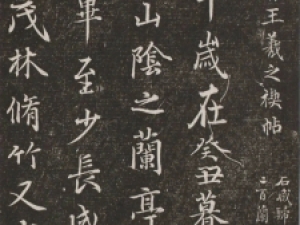 王羲之禊帖
歲在癸丑暮
山陰之蘭亭
畢至少長咸
茂林脩竹又